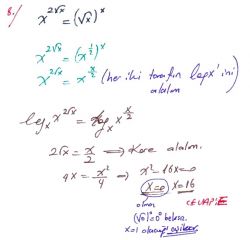 8./ x^{2√x} = (√x)^x
x^{2√x} = (x^{1/2})^x
x^{2√x} = x^{x/2} (her iki tarafın logx'ini
alalım
log_x x^{2√x} = log_x x^{x/2}
2√x = x/2 ⟹ Kare alalım.
4x = x²/4 ⟹ x² - 16x = 0
x=0 x=16
olmaz CEVAP: E
(√0)^0 = 0^0 belirsiz
x=1 olacağı